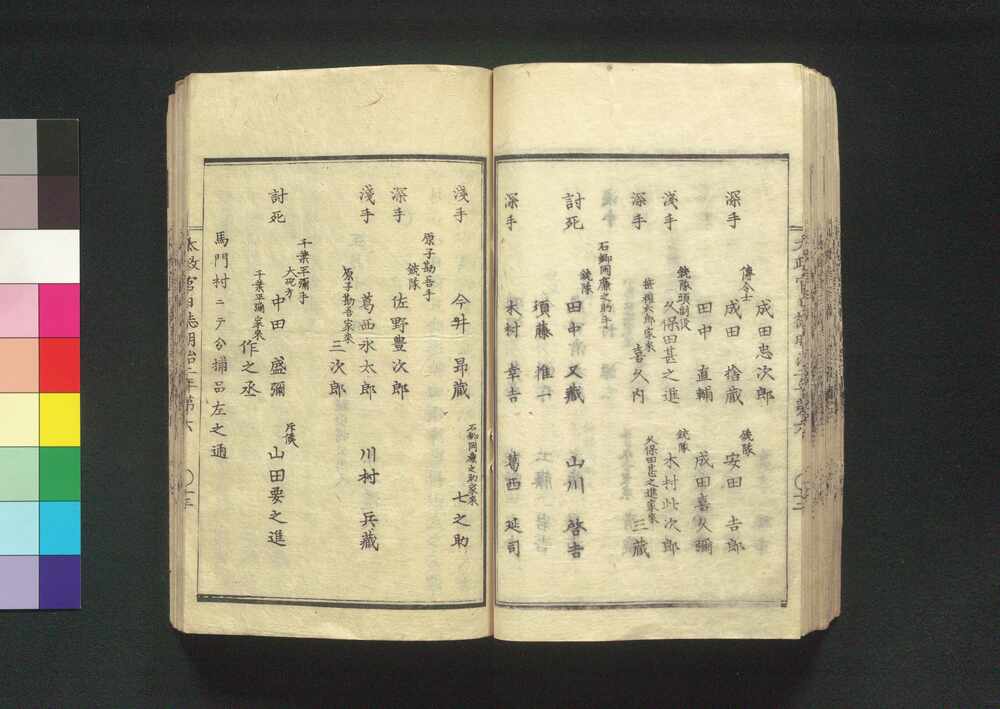 成田忠次郎
深手
傳令士
成田 捨藏
銃隊
安田 吉郎
田中 直輔
成田喜久彌
淺手
銃隊頭副役
久保田甚之進
銃隊
木村此次郎
深手
喜久内
久保田甚之進家來
三藏
石郷岡廉之助手
討死
銃隊
田中清又藏
山川 啓吉
須藤 惟一
深手
木村 幸吉
葛西 延司
淺手
今井 昻藏
石郷岡廉之助家來
七之助
原子勘吾手
深手
銃隊
佐野豊次郎
淺手
葛西永太郎
川村 兵藏
原子勘吾家來
三次郎
千葉平彌手
討死
大砲方
中田 盛彌
斥候
山田要之進
千葉平彌家來
作之丞
馬門村ニテ分捕品左之通
太政官日誌明治二年第六